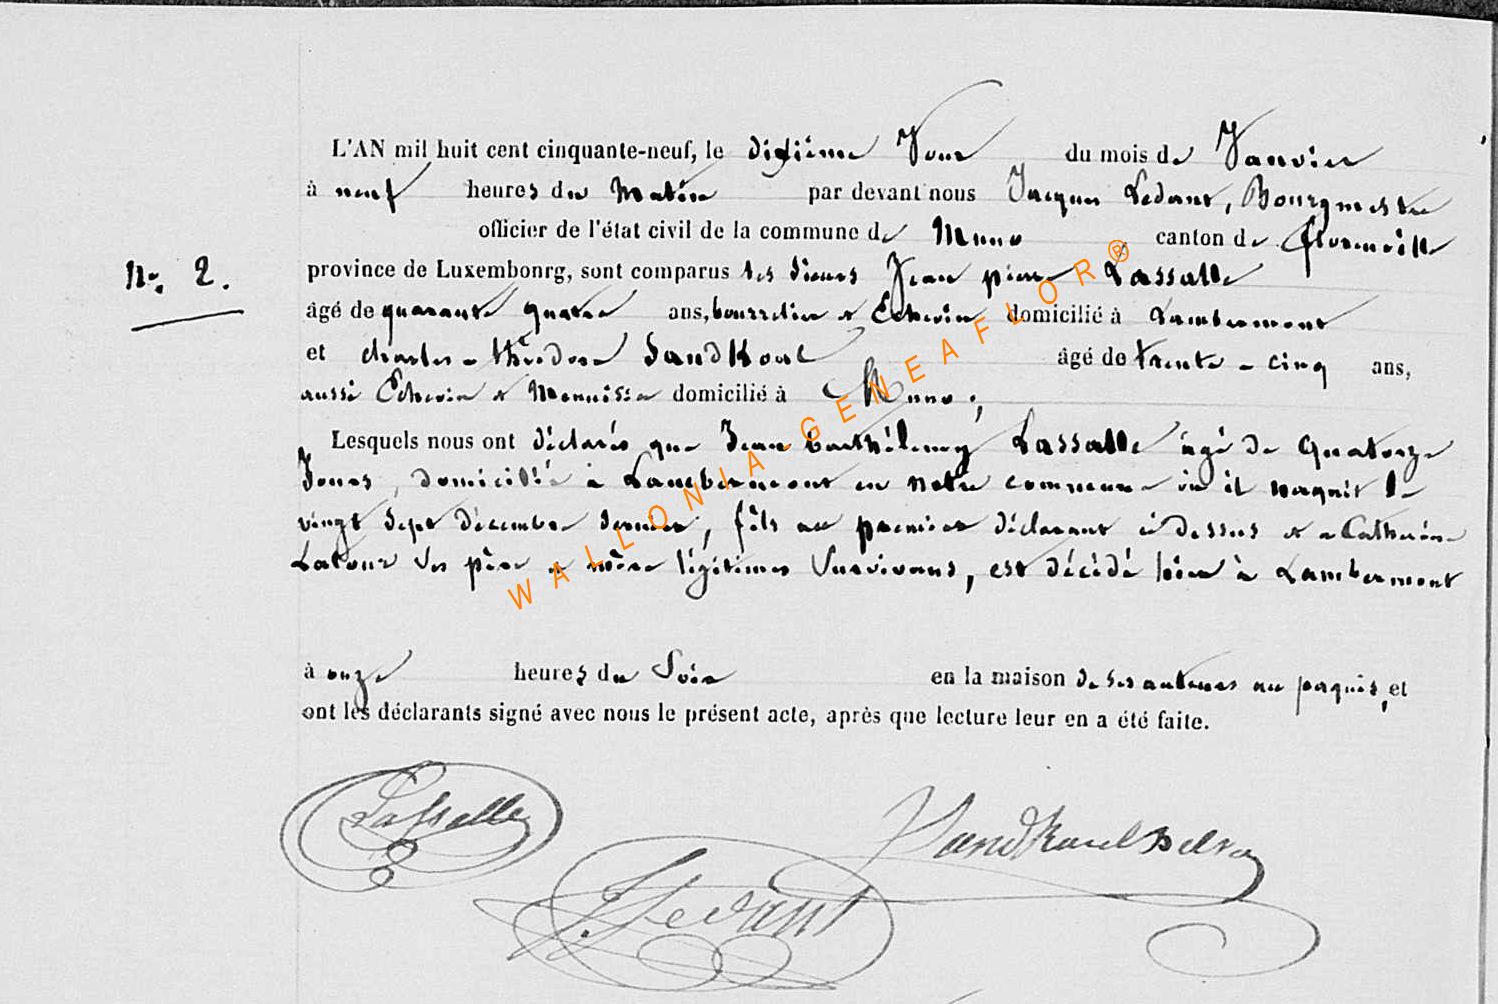 L'AN mil huit cent cinquante-neuf, le dixième Jour du mois de Janvier
à neuf heures du Matin par devant nous Jacques Ledant, Bourgmestre
officier de l'état civil de la commune de Muno canton de Florenville
No. 2.
province de Luxembourg, sont comparus les Sieurs Jean pierre Lassalle
âgé de quarante quatre ans, bourrelier et Echevin domicilié à Lambermont
et charles-théodore Sandkoul âgé de trente-cinq ans,
aussi Echevin et Menuisier domicilié à Muno;
Lesquels nous ont déclarés que Jean barthélemy Lassalle âgé de quatorze
Jours, domicilié à Lambermont en notre commune où il naquit le
vingt Sept décembre dernier, fils au premier déclarant ci dessus et a Catherine
Latour Ses père et mère légitimes Survivans, est décédé hier à Lambermont
à onze heures du Soir en la maison de ses auteurs au paquis, et
ont les déclarants signé avec nous le présent acte, après que lecture leur en a été faite.
Lassalle
Sandkoul
J. Ledant
WALLONIA-GENEAFLOR®